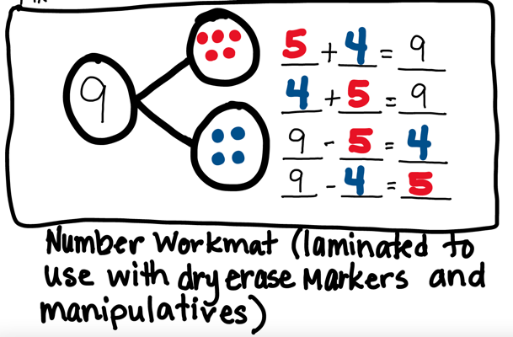 9
5 + 4 = 9
4 + 5 = 9
9 - 5 = 4
9 - 4 = 5
Number Workmat (laminated to
use with dry erase Markers and
manipulatives)